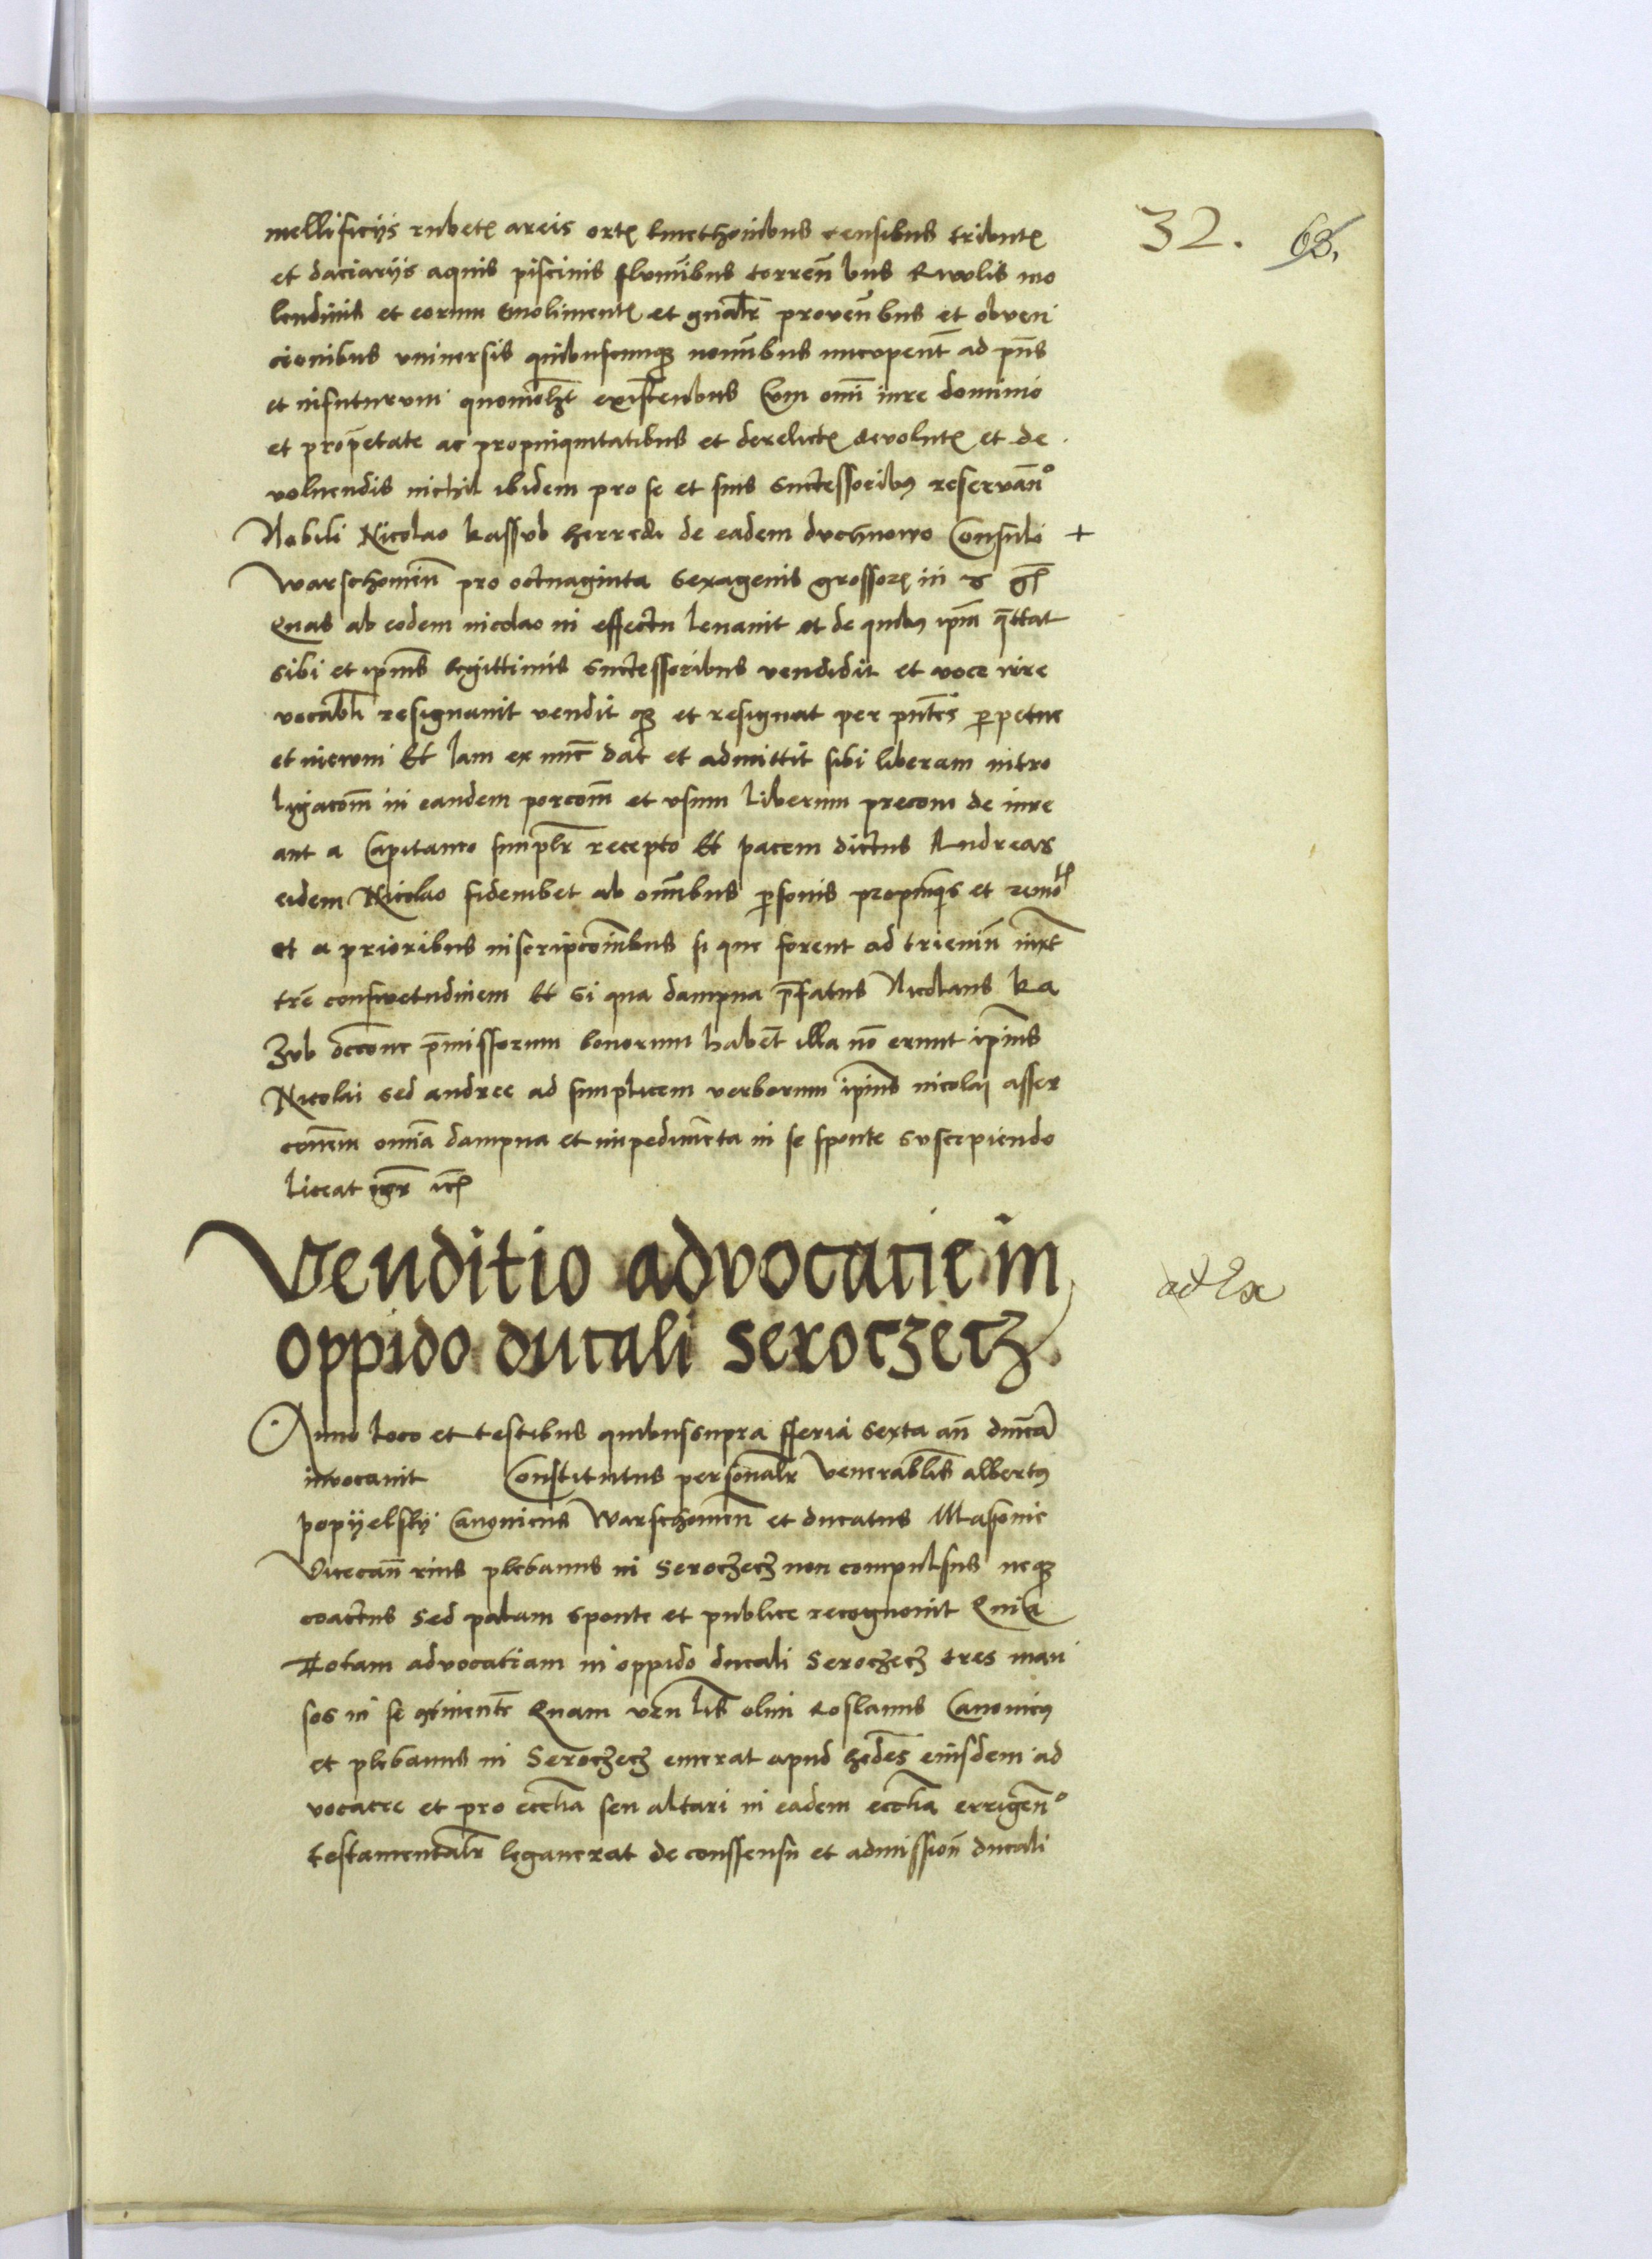 32. 63.
mellificijs rubet(is) areis ort(is) kmethonibus censibus tribut(is)
et daciarijs aquis piscinis flumĩbus torreñ bus Rivolis mo
lendinis et eorum Emolimen(tis) et gnalr proveñbus et obveni
cionibus vniuersis quibuscumq(ue) nomĩbus nucopent ad pñs
et infuturum quomolȝt existeñbus Cum omi iure dominio
et propetate ac propinquitatibus et derelict(is) devolut(is) et de
voluendis nichil ibidem pro se et suis Successorib(us) reservañº
Nobili Nicolao kassvb herredi de eadem dvchnowo Consuli +
Warschouieñ pro octuaginta Sexagenis grossor(um) in
Quas ab eodem nicolao in effectu leuauit et de quib(us) ipm qttat
Sibi et ipius legittimis Successoribus vendidit et voce irre
vocabli resignauit vendit q(ue) et resignat per pntes perpetue
et in ewum Et Iam ex nuc dat et admittit sibi liberam intro
ligacom in eandem porcom et vsum Liberum precom de iure
aut a Capitaneo simplr recepto Et pacem dictus Andreas
eidem Nicolao fideiubet ab omibus psonis propinq(ui)s et remo
et a prioribus inscripcoibus si que forent ad trieniu iuxt
tre conswetudinem Et Si qua dampna pfatus Nicolaus ka
Zvb pmissorum bonorum habet illa no erunt ipius
Nicolai Sed andree ad simplicem verborum ipius nicolaj asser
conem omia dampna et impedimeta in se sponte Suscipiendo
Liceat igr
Venditio advocacie in
oppido ducali Seroczecz
ad Ex
Anno Loco et testibus quibussupra fferia Sexta añ dnica
invocauit Constitutus personalr Venerablis albert(us)
popijelskij Canonicus Warschouien et ducatus Masouie
Vicecañ rius plebanus in Seroczecz non compulsus neq(ue)
coactus Sed palam Sponte et publice recognouit Quia
Totam advocatiam in oppido ducali Seroczecz tres man
sos in se gtinente Quam ven lis olim Roslaus Canonic(us)
et plebanus in Seroczecz emerat apud hedes eiusdem ad
vocacie et pro ecclia seu altari in eadem ecclia errigenº
testamentalr legauerat de conssensu et admission ducali